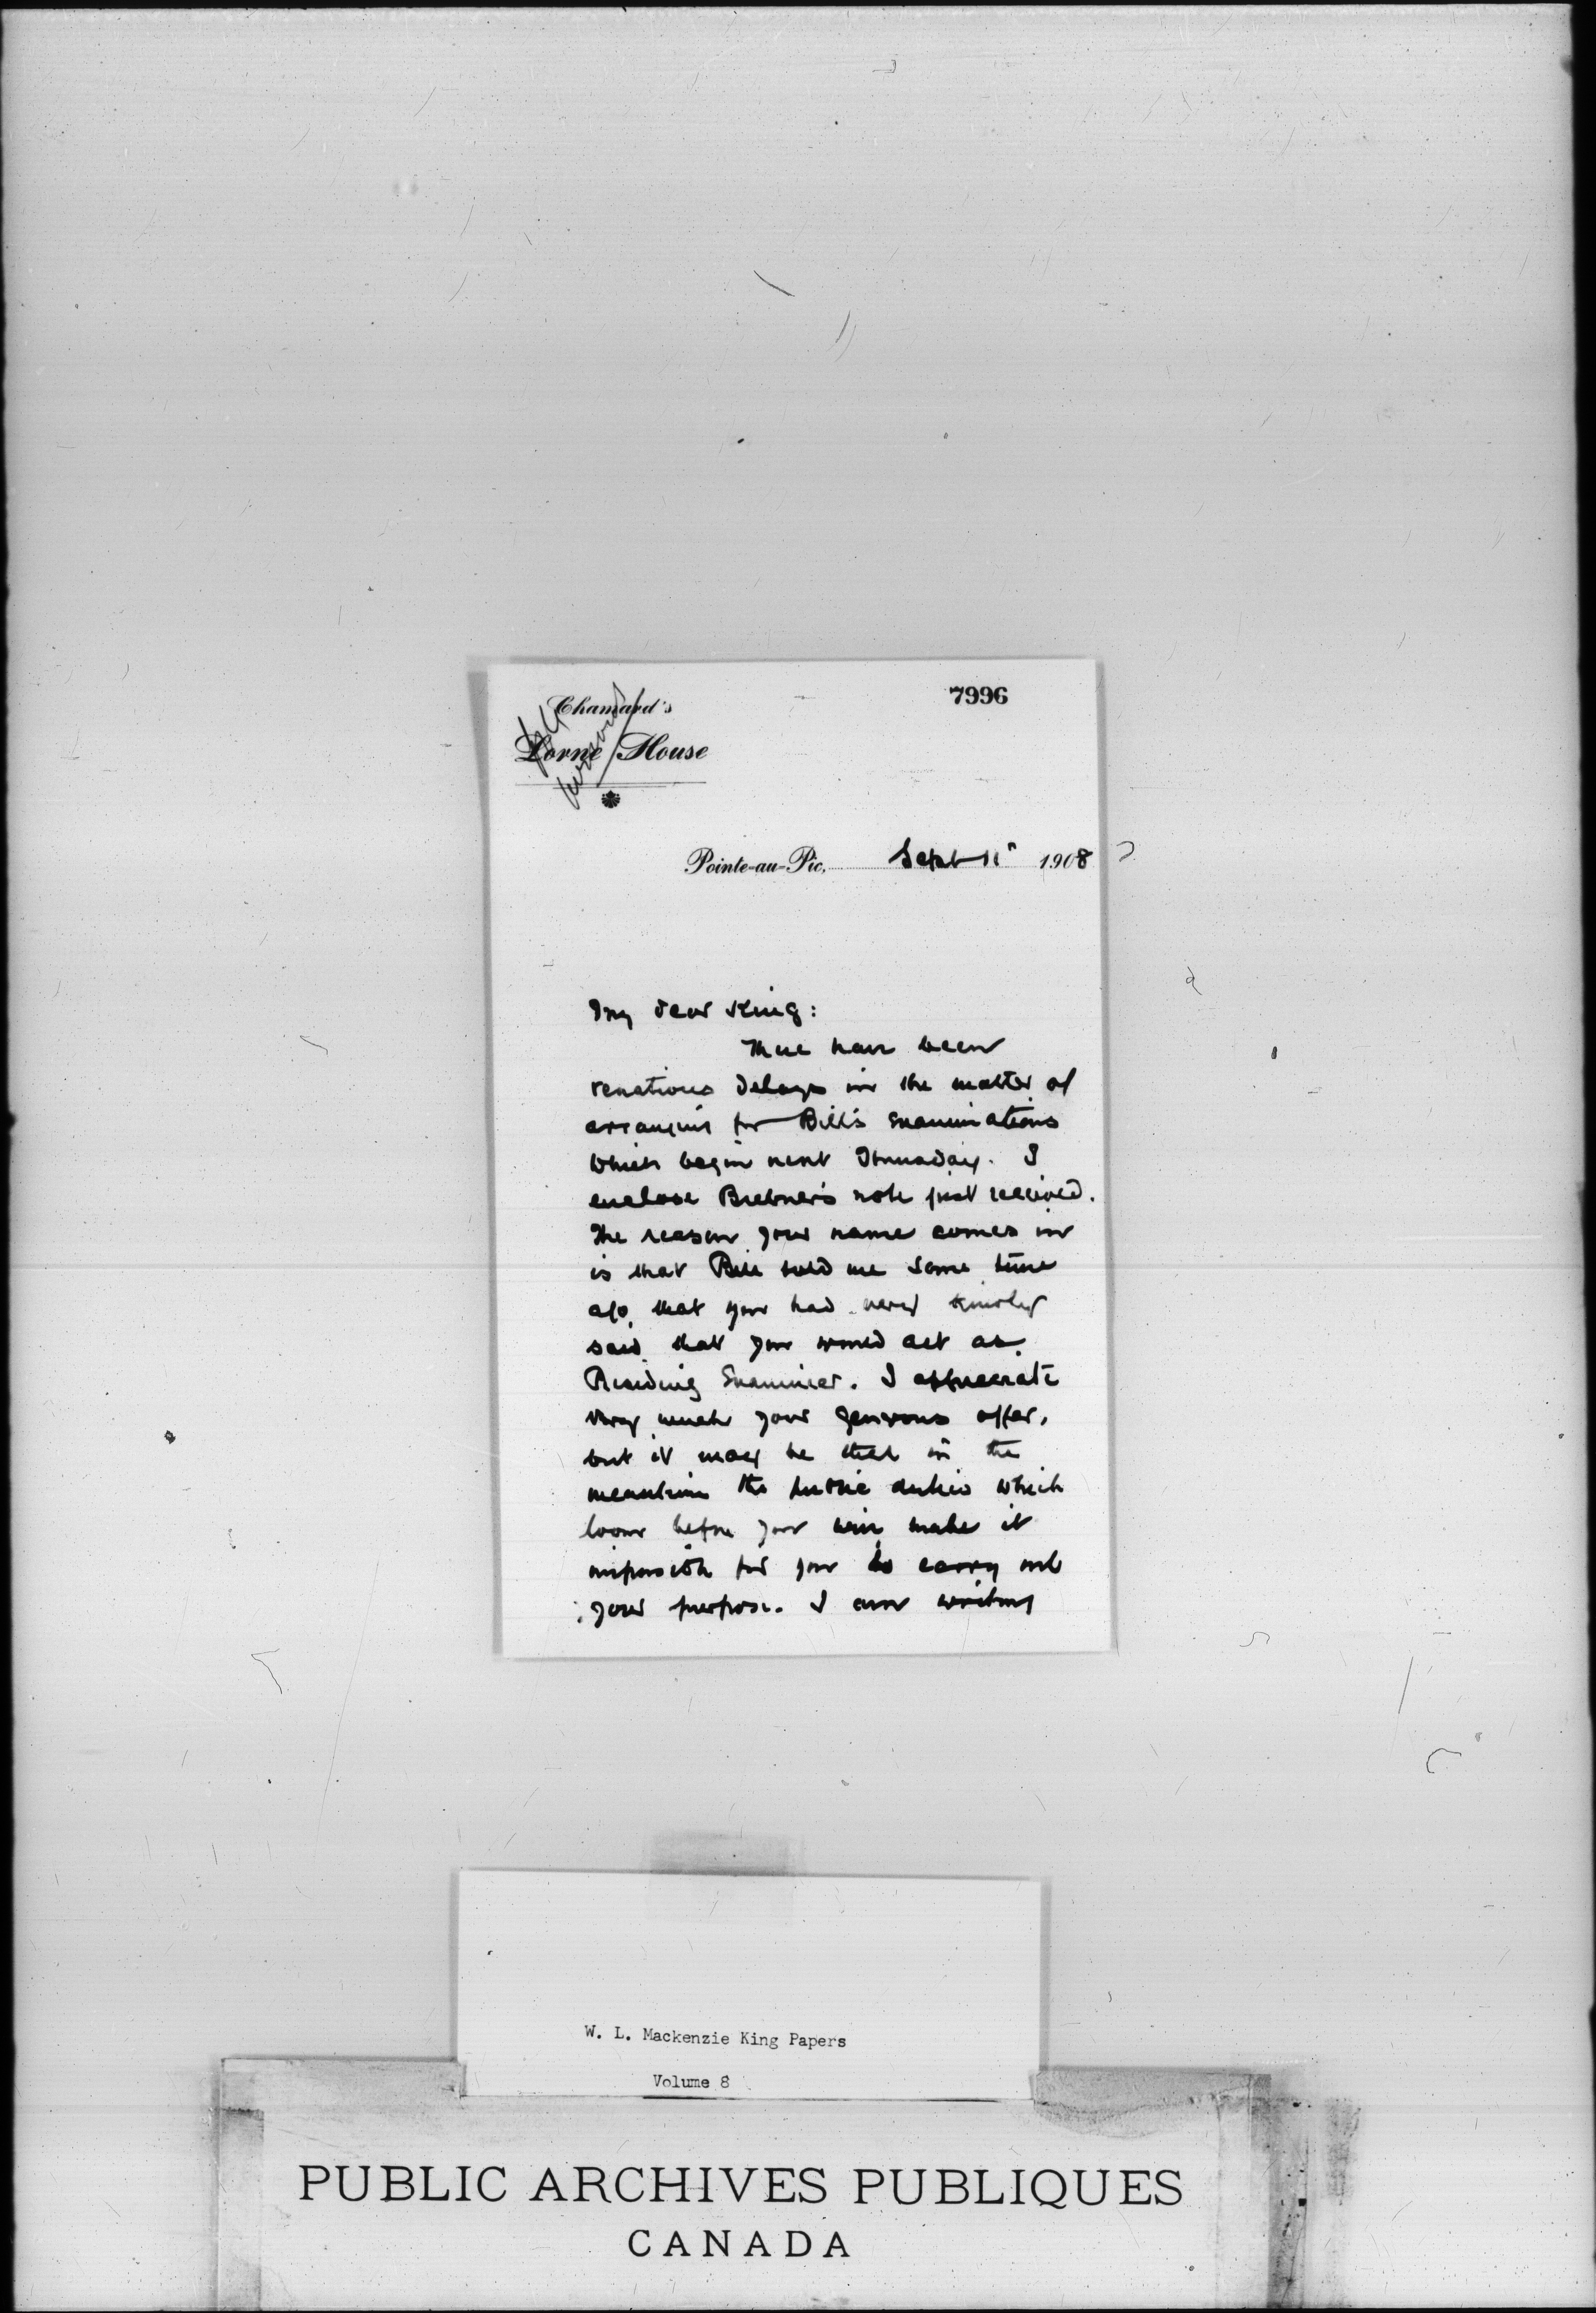 7996
Chamard's
Lorne House
Pointe-au-Pic, Sept 11" 1908
My dear King:
There have been
vexatious delays in the matter of
arranging for Bill's examinations
which begin next Thursday. I
enclose Brebner's note just received.
The reason your name comes in
is that Bill told me some time
ago that you had very kindly
said that you would act as
Presiding Examiner. I appreciate
very much your generous offer,
but it may be that in the
meantime the public duties which
loom before you will make it
impossible for you to carry out
your purpose. I am writing
W. L. Mackenzie King Papers
Volume 8
PUBLIC ARCHIVES PUBLIQUES
CANADA